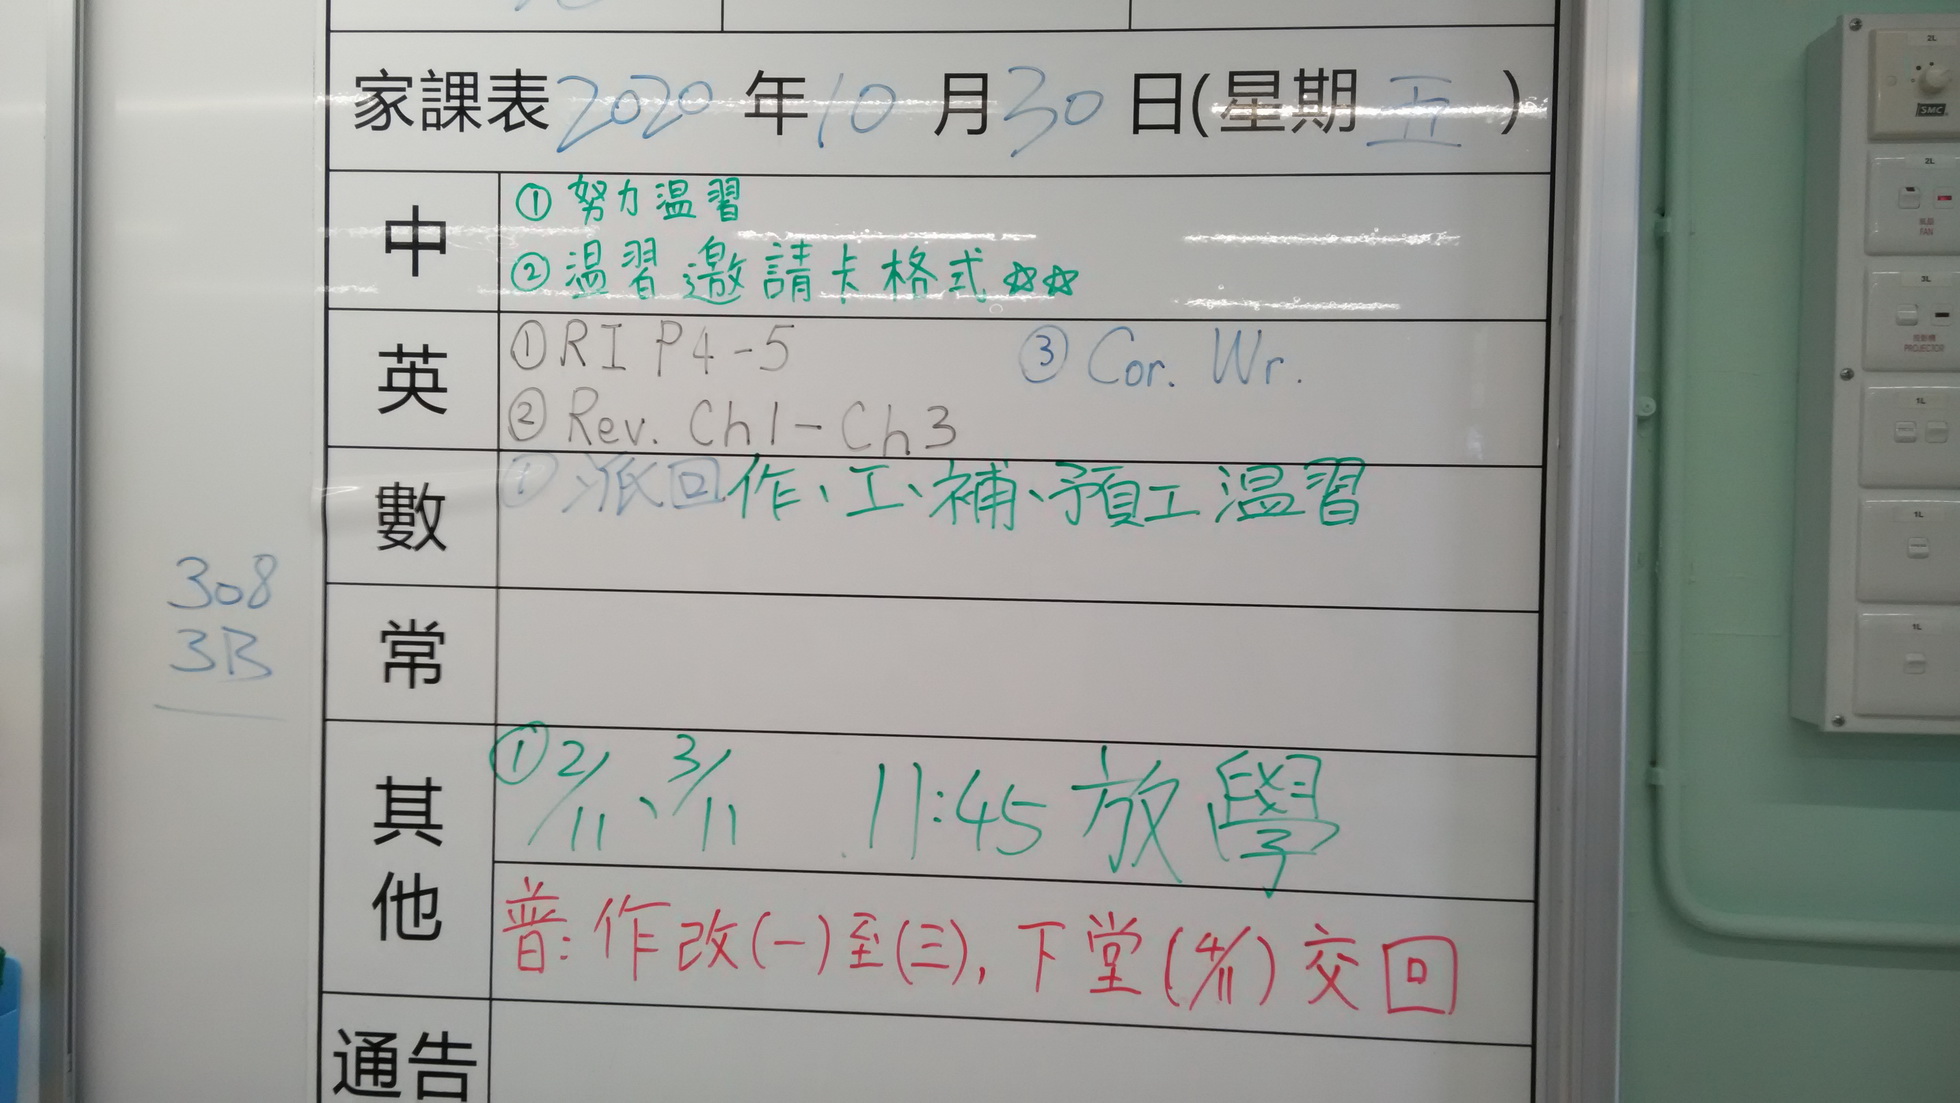 家課表2020年10月30日(星期五)
中
①努力温習
②温習邀請卡格式☆☆
英
①RI P4-5
③Cor. Wr.
②Rev. Ch1-Ch3
數
①派回作、工、補、預工温習
308
3B
常
其他
①2/11、3/11 11:45放學
普:作改(一)至(三),下堂(4/11)交回
通告
2L
SMC
2L
風扇
FAN
3L
投影機
PROJECTOR
1L
1L
1L